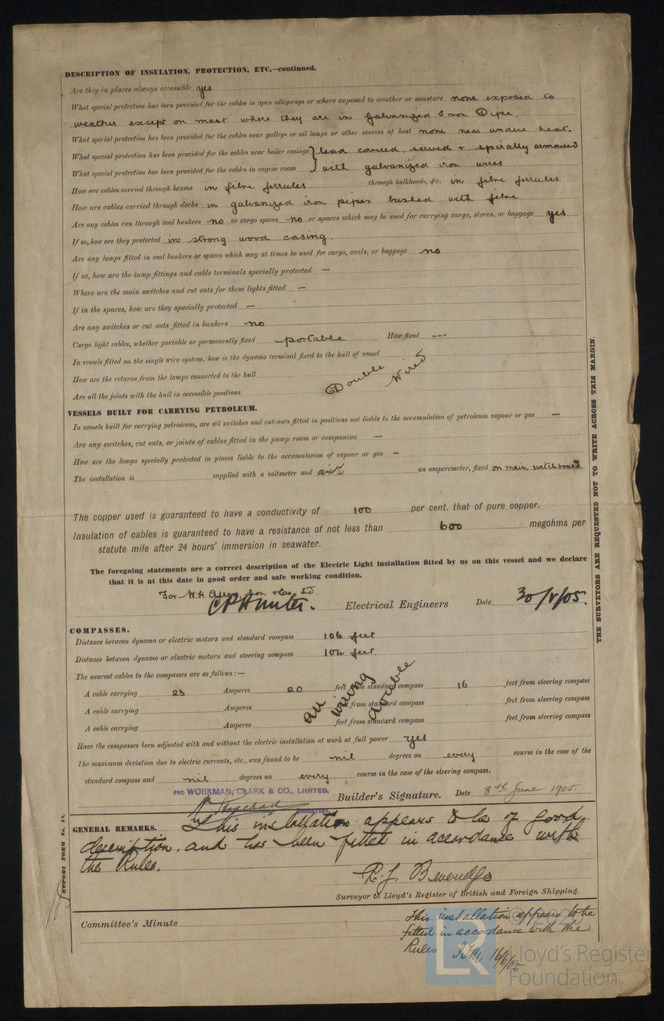 DESCRIPTION OF INSULATION, PROTECTION, ETC.—continued.
Are they in places always accessible yes
What special protection has been provided for the cables in open alleyways or where exposed to weather or moisture none exposed to
weather except on mast where they are in galvanized Iron Pipe
What special protection has been provided for the cables near galleys or oil lamps or other sources of heat none near undue heat.
What special protection has been provided for the cables near boiler casings } lead covered, served & spirally armoured
What special protection has been provided for the cables in engine room } with galvanized iron wires
How are cables carried through beams in fibre ferrules through bulkheads, &c. in fibre ferrules
How are cables carried through decks in galvanized iron pipes bushed with fibre
Are any cables run through coal bunkers no or cargo spaces no or spaces which may be used for carrying cargo, stores, or baggage yes
If so, how are they protected in strong wood casing.
Are any lamps fitted in coal bunkers or spaces which may at times be used for cargo, coals, or baggage no
If so, how are the lamp fittings and cable terminals specially protected —
Where are the main switches and cut outs for these lights fitted —
If in the spaces, how are they specially protected —
Are any switches or cut outs fitted in bunkers no
Cargo light cables, whether portable or permanently fixed portable How fixed ---
In vessels fitted on the single wire system, how is the dynamo terminal fixed to the hull of vessel
How are the returns from the lamps connected to the hull
Double Wired
Are all the joints with the hull in accessible positions
VESSELS BUILT FOR CARRYING PETROLEUM.
In vessels built for carrying petroleum, are all switches and cut-outs fitted in positions not liable to the accumulation of petroleum vapour or gas —
Are any switches, cut outs, or joints of cables fitted in the pump room or companion —
How are the lamps specially protected in places liable to the accumulation of vapour or gas —
The installation is supplied with a voltmeter and with an amperemeter, fixed on main switchboard
The copper used is guaranteed to have a conductivity of 100 per cent. that of pure copper.
Insulation of cables is guaranteed to have a resistance of not less than 600 megohms per
statute mile after 24 hours' immersion in seawater.
The foregoing statements are a correct description of the Electric Light installation fitted by us on this vessel and we declare
that it is at this date in good order and safe working condition.
For W.H. Allen, Son & Co. Ld.
Electrical Engineers Date 30/5/05.
COMPASSES.
Distance between dynamo or electric motors and standard compass 106 feet
Distance between dynamo or electric motors and steering compass 104 feet
The nearest cables to the compasses are as follows:—
A cable carrying 23 Amperes 20 feet from standard compass 16 feet from steering compass
A cable carrying Amperes feet from standard compass feet from steering compass
A cable carrying Amperes feet from standard compass feet from steering compass
All wiring double
Have the compasses been adjusted with and without the electric installation at work at full power yes
The maximum deviation due to electric currents, etc., was found to be nil degrees on every course in the case of the
standard compass and nil degrees on every course in the case of the steering compass.
PRO WORKMAN, CLARK & CO., LIMITED.
Builder's Signature. Date 8th June 1905
GENERAL REMARKS. This installation appears to be of good
description. and has been fitted in accordance with
the Rules.
Surveyor to Lloyd's Register of British and Foreign Shipping.
Committee's Minute
This installation appears to be
fitted in accordance with the
Rules 16/6/05
THE SURVEYORS ARE REQUESTED NOT TO WRITE ACROSS THIS MARGIN
REPORT FORM No. 13.
LR
Lloyd's Register
Foundation